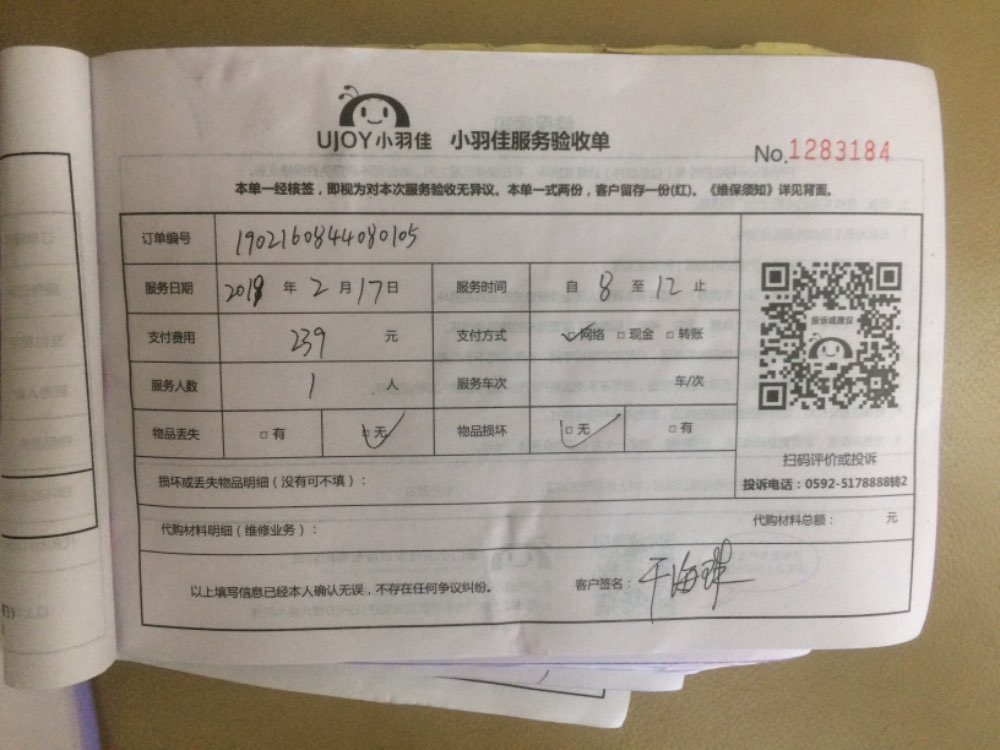 UJOY小羽佳 小羽佳服务验收单
No.1283184
本单一经核签，即视为对本次服务验收无异议。本单一式两份，客户留存一份(红)。《维保须知》详见背面。
订单编号 1902160844080105
服务日期 2019 年 2 月 17 日 服务时间 自 8 至 12 止
支付费用 239 元 支付方式 ☑网络 □现金 □转账
投诉或建议
服务人数 1 人 服务车次 车/次
物品丢失 □有 ☑无 物品损坏 ☑无 □有
扫码评价或投诉
投诉电话：0592-5178888转2
损坏或丢失物品明细（没有可不填）：
代购材料明细（维修业务）： 代购材料总额： 元
以上填写信息已经本人确认无误，不存在任何争议纠纷。 客户签名：